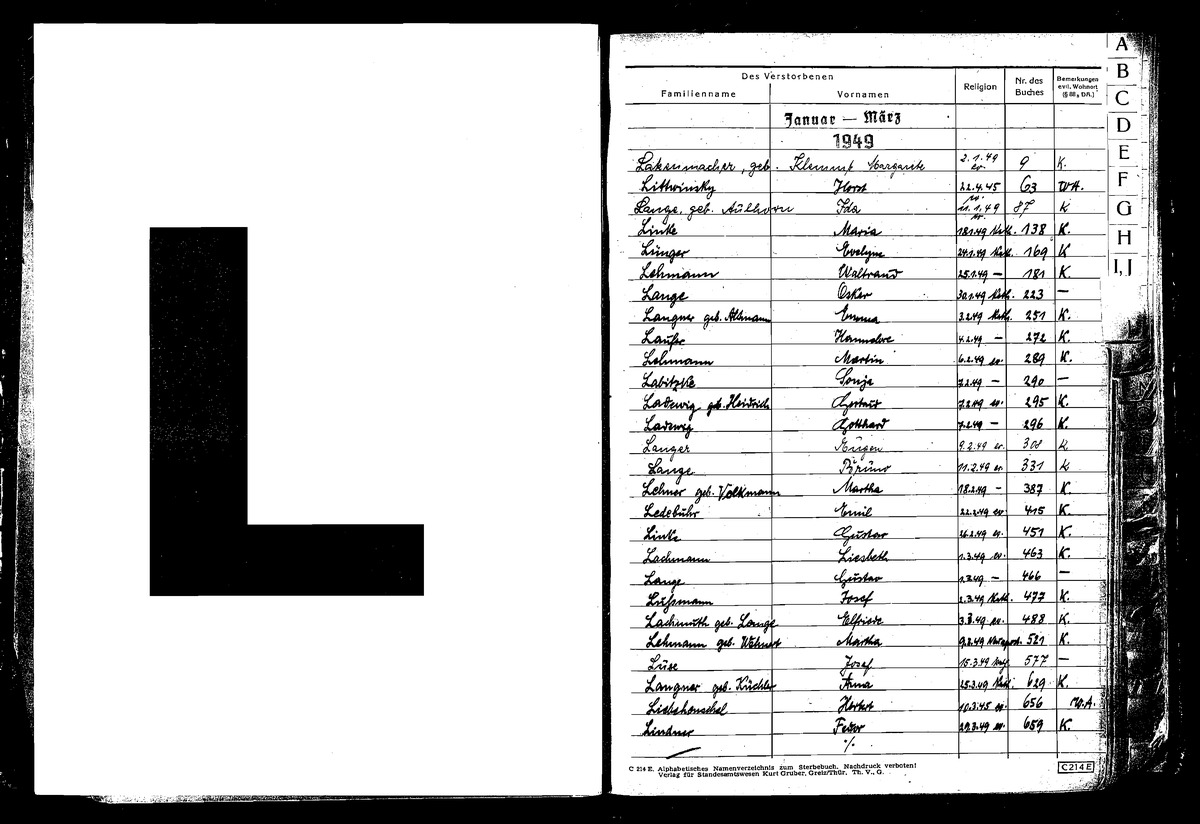 L
A
B
C
D
E
F
G
H
I, J
Des Verstorbenen
Familienname Vornamen Religion Nr. des Buches Bemerkungen evtl. Wohnort
Januar — März
1949
Lakenmacher, geb. Klemmt Margarete 2.1.49 ev. 9 K.
Littwinsky Horst 22.4.45 63 W.A.
Lange, geb. Aulhorn Ida 11.1.49 87 K
Linke Maria 18.1.49 Kath. 138 K.
Lünger Evelyne 24.1.49 Kath. 169 K
Lehmann Waltraud 25.1.49 — 181 K.
Lange Oskar 30.1.49 Kath. 223 —
Langner geb. Altmann Emma 3.2.49 Kath. 251 K.
Laufer Hannelore 4.2.49 — 272 K.
Lehmann Martin 6.2.49 ev. 289 K.
Labitzke Sonja 7.2.49 — 290 —
Ladewig geb. Heidrich Gertrud 7.2.49 ev. 295 K.
Ladewig Gotthard 7.2.49 — 296 K.
Langer Eugen 9.2.49 ev. 308 K
Lange Bruno 11.2.49 ev. 331 K
Lehner geb. Volkmann Martha 18.2.49 — 387 K.
Ledebuhr Emil 22.2.49 ev 415 K.
Linke Gustav 26.2.49 ev. 451 K.
Lachmann Liesbeth 1.3.49 ev. 463 K.
Lange Gustav 1.3.49 — 466 —
Lußmann Josef 2.3.49 Kath. 477 K.
Lachmuth geb. Lange Elfriede 3.3.49 ev. 488 K.
Lehmann geb. Wehnert Martha 9.3.49 Neuapost. 521 K.
Luse Josef 15.3.49 577 —
Langner geb. Küchler Anna 25.3.49 Kath. 629 K.
Liebehenschel Herbert 10.3.45 ev. 656 W.A.
Lindner Fedor 29.3.49 ev. 659 K.
·/.
C 214 E. Alphabetisches Namenverzeichnis zum Sterbebuch. Nachdruck verboten!
Verlag für Standesamtswesen Kurt Gruber, Greiz/Thür. Th. V., G.
C 214 E